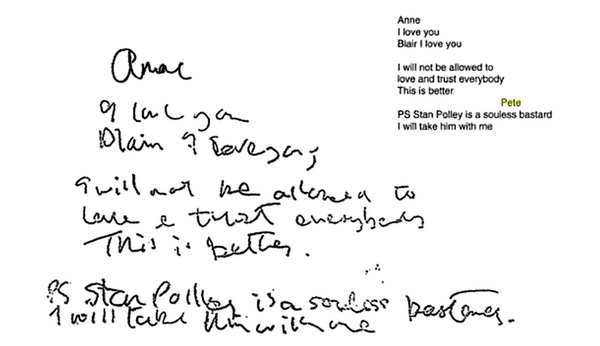 Anne
I love you
Blair I love you
I will not be allowed to
love and trust everybody
This is better
Pete
PS Stan Polley is a souless bastard
I will take him with me
Anne
I love you
Blair I love you
I will not be allowed to
love & trust everybody
This is better.
PS Stan Polley is a souless bastard.
I will take him with me